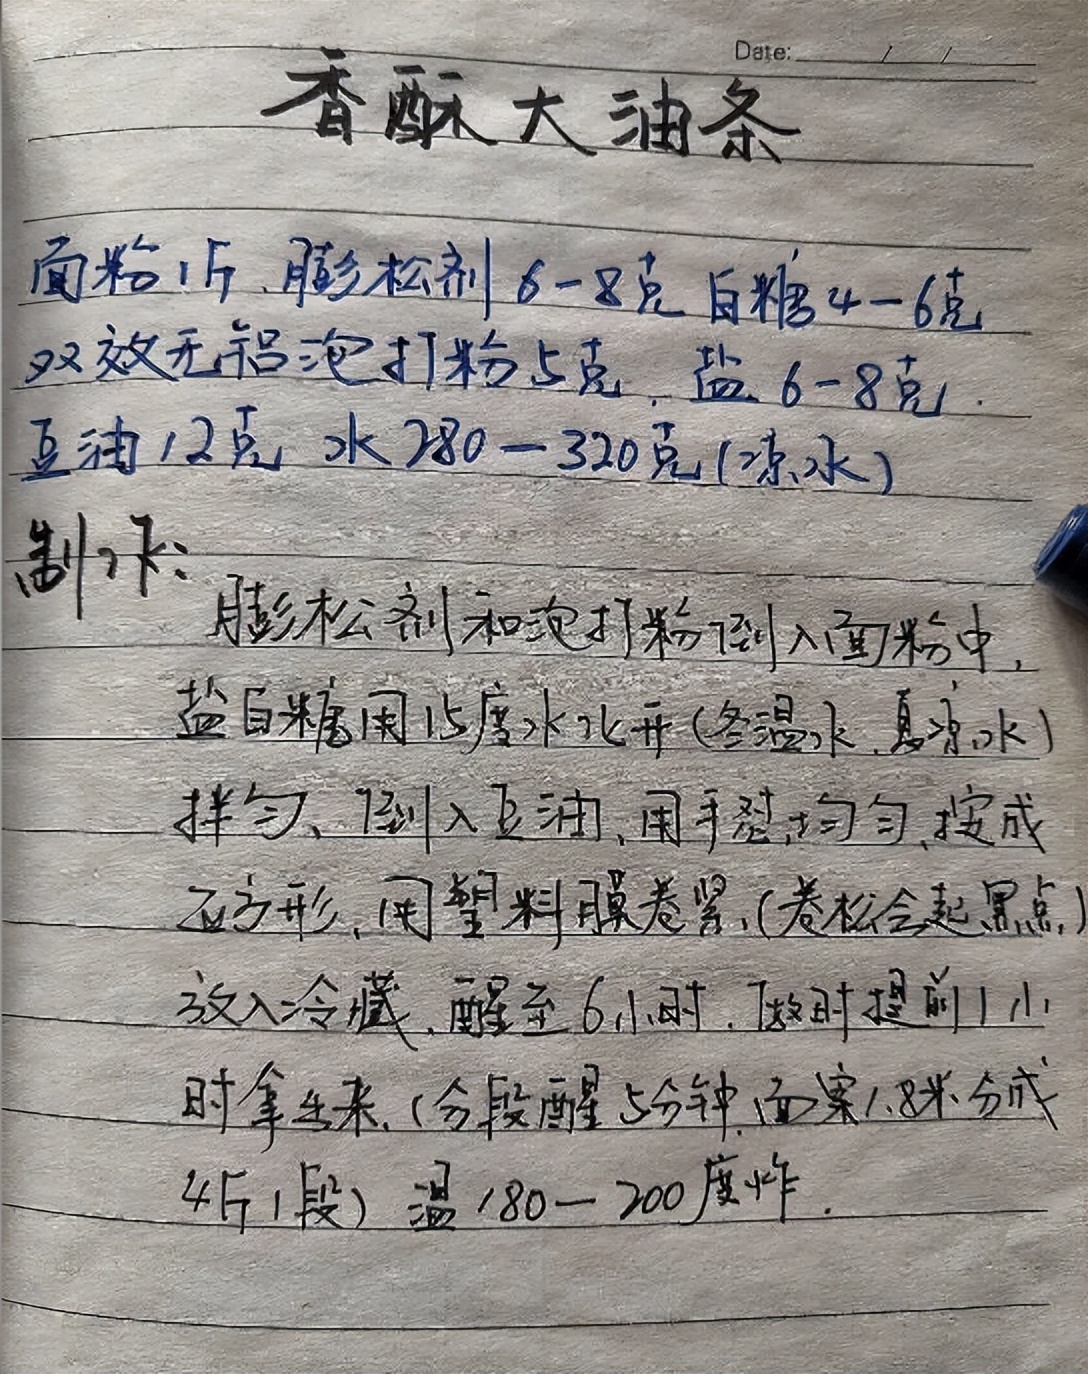 Date: / /
香酥大油条
面粉1斤、膨松剂6-8克 白糖4-6克
双效无铝泡打粉5克、盐6-8克.
豆油12克 水280-320克(凉水)
制作:
膨松剂和泡打粉倒入面粉中,
盐白糖用15度水化开(冬温水、夏凉水)
拌匀、倒入豆油、用手怼均匀,按成
正方形、用塑料膜卷紧、(卷松会起黑点)
放入冷藏、醒至6小时、做时提前1小
时拿出来、(分段醒5分钟、面案1.8米分成
4斤1段) 温180-200度炸.